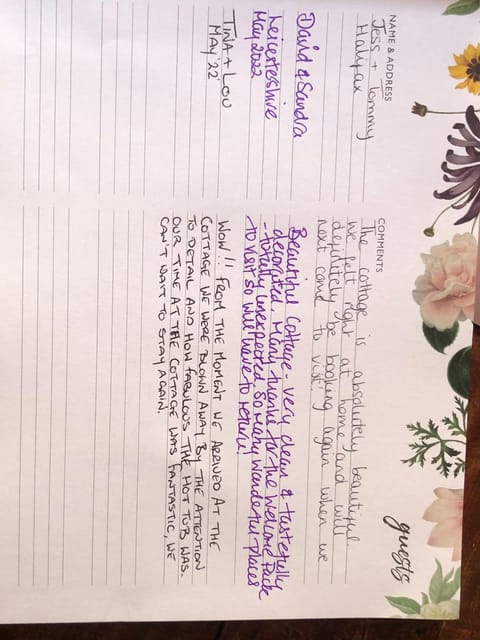 guests
NAME & ADDRESS
COMMENTS
Jess + Tommy
Halifax
The cottage is absolutely beautiful
we felt right at home and will
definitely be booking again when we
next come to visit!
David & Sandra
Leicestershire
May 2022
Beautiful Cottage - very clean & tastefully
decorated. Many thanks for the Welcome Pack
- totally unexpected. So many wonderful places
to visit so will have to return!
TINA + LOU
MAY '22
WOW!! FROM THE MOMENT WE ARRIVED AT THE
COTTAGE WE WERE BLOWN AWAY BY THE ATTENTION
TO DETAIL AND HOW FABULOUS THE HOT TUB WAS.
OUR TIME AT THE COTTAGE WAS FANTASTIC, WE
CAN'T WAIT TO STAY AGAIN.